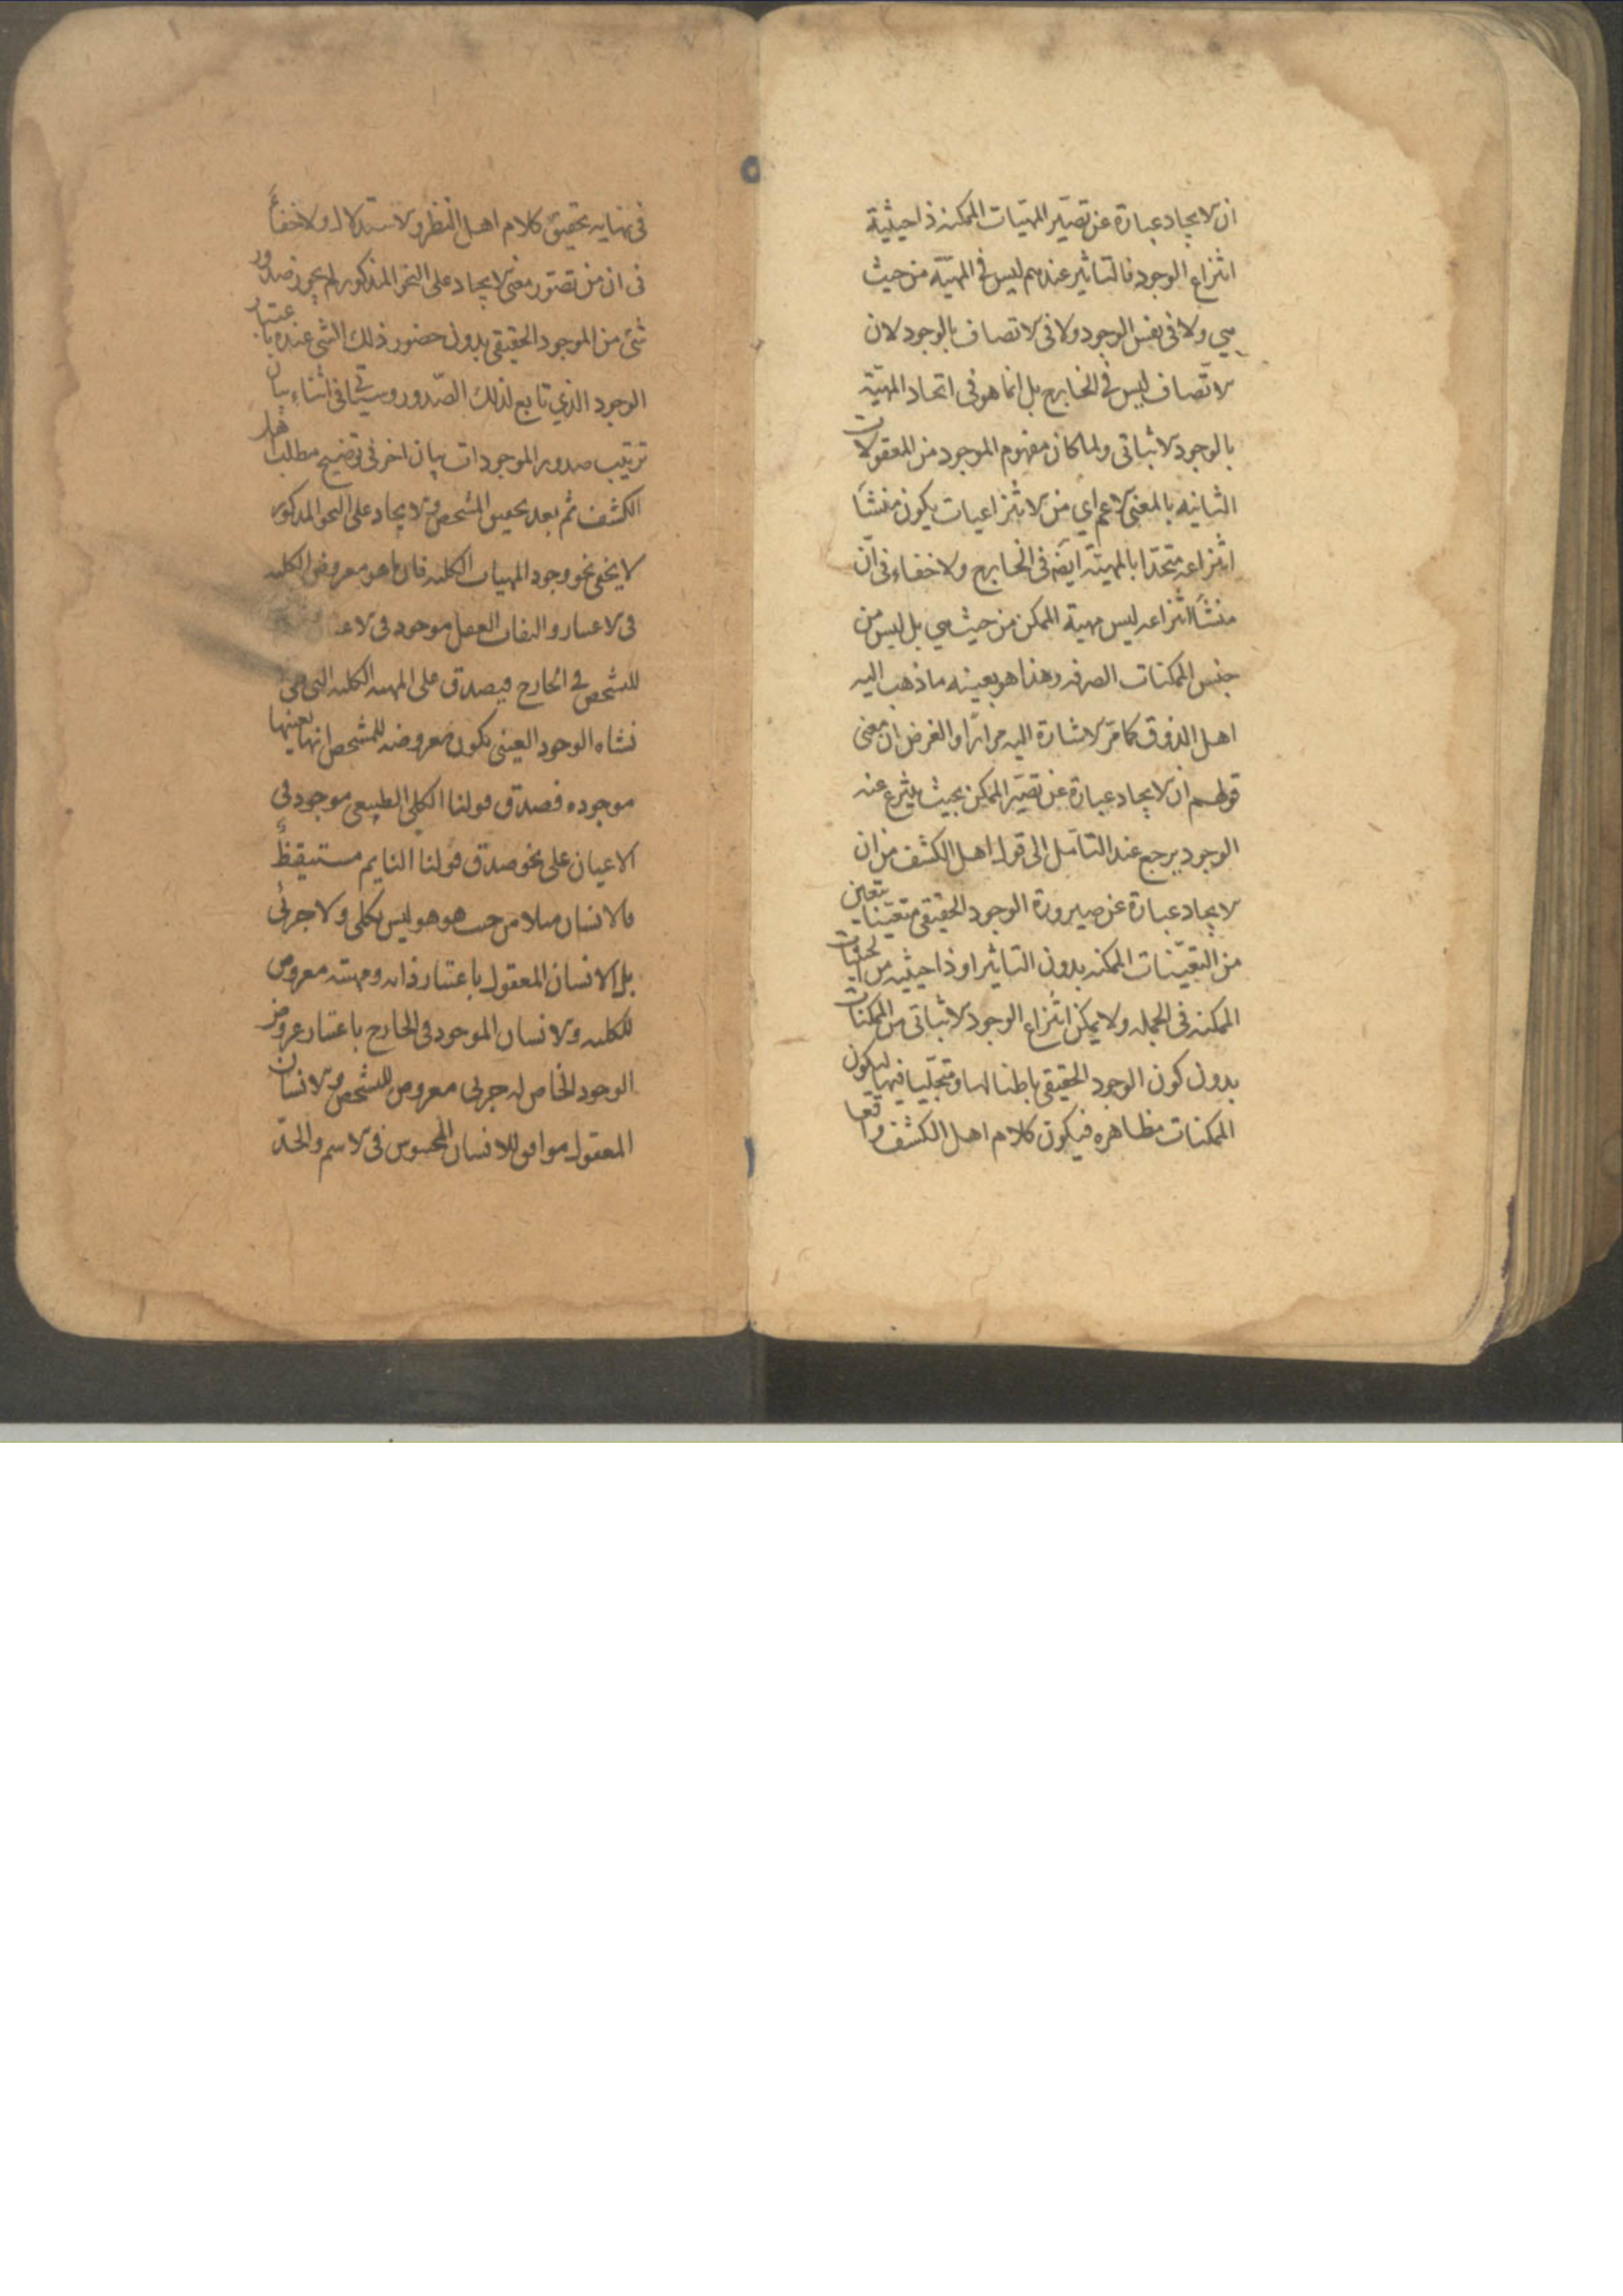 ان الايجاد عبارة عن تصيير المهيّات الممكنه ذا حيثية
انتزاع الوجود فالتاثير عندهم ليس في المهيّة من حيث
هي ولا في نفس الوجود ولا في الاتصاف بالوجود لان
الاتّصاف ليس في الخارج بل انما هو في اتحاد المهيّة
بالوجود الاثباتى ولما كان مفهوم الموجود من المعقولات
الثانيه بالمعنى الاعم اي من الانتزاعيات يكون منشأ
انتزاعه متحدا بالمهيّة ايضه فى الخارج ولا خفاء فى انّ
منشأ انتزاعه ليس مهية الممكن من حيث هي بل ليس من
جنس الممكنات الصرفه وهذا هو بعينه ما ذهب اليه
اهل الذوق كما مرّ الاشارة اليه مرارًا والغرض ان معنى
قولهم ان الايجاد عبارة عن تصيّر الممكن بحيث ينتزع عنه
الوجود يرجع عند التأمل الى قول اهل الكشف من ان
الايجاد عبارة عن صيرورة الوجود الحقيقى متعيّنا بتعين
من التعيّنات الممكنه بدون التاثير او ذا حيثيه من الحيثيات
الممكنه فى الجمله ولا يمكن انتزاع الوجود الاثباتى من الممكنات
بدون كون الوجود الحقيقى باطنا لها ومتجلّيا فيها ليكون
الممكنات مظاهره فيكون كلام اهل الكشف واقعا
فى نهايه تحقيق كلام اهل النظر والاستدلال ولا خفأ
فى ان من تصوّر معنى الايجاد على النحو المذكور لم يجوز صدور
شئ من الموجود الحقيقى بدون حضور ذلك الشئ عنده باعتبار
الوجود الذي تابع لذلك الصّدور وسياتى فى اثناء بيان
ترتيب صدور الموجودات بيان اخر فى توضيح مطلب اهل
الكشف ثم بعد تحقيق التشخص والايجاد على النحو المذكور
لا يخفى نحو وجود المهيات الكليه فان ما هو معروض الكليه
فى الاعتبار والتفات العقل موجود فى
للتشخص في الخارج فيصدق على المهيه الكليه التى فى
نشاه الوجود العينى يكون معروضه للتشخص انها بعينها
موجوده فصدق قولنا الكلى الطبيعى موجود فى
الاعيان على نحو صدق قولنا النايم مستيقظ
فالانسان مثلا من حيث هو هو ليس بكلى ولا جزئى
بل الانسان المعقول باعتبار ذاته ومهيته معروض
للكليه والانسان الموجود فى الخارج باعتبار عروض
الوجود الخاص له جزئى معروض للتشخص والانسان
المعقول موافق للانسان المحسوس فى الاسم والحدّ